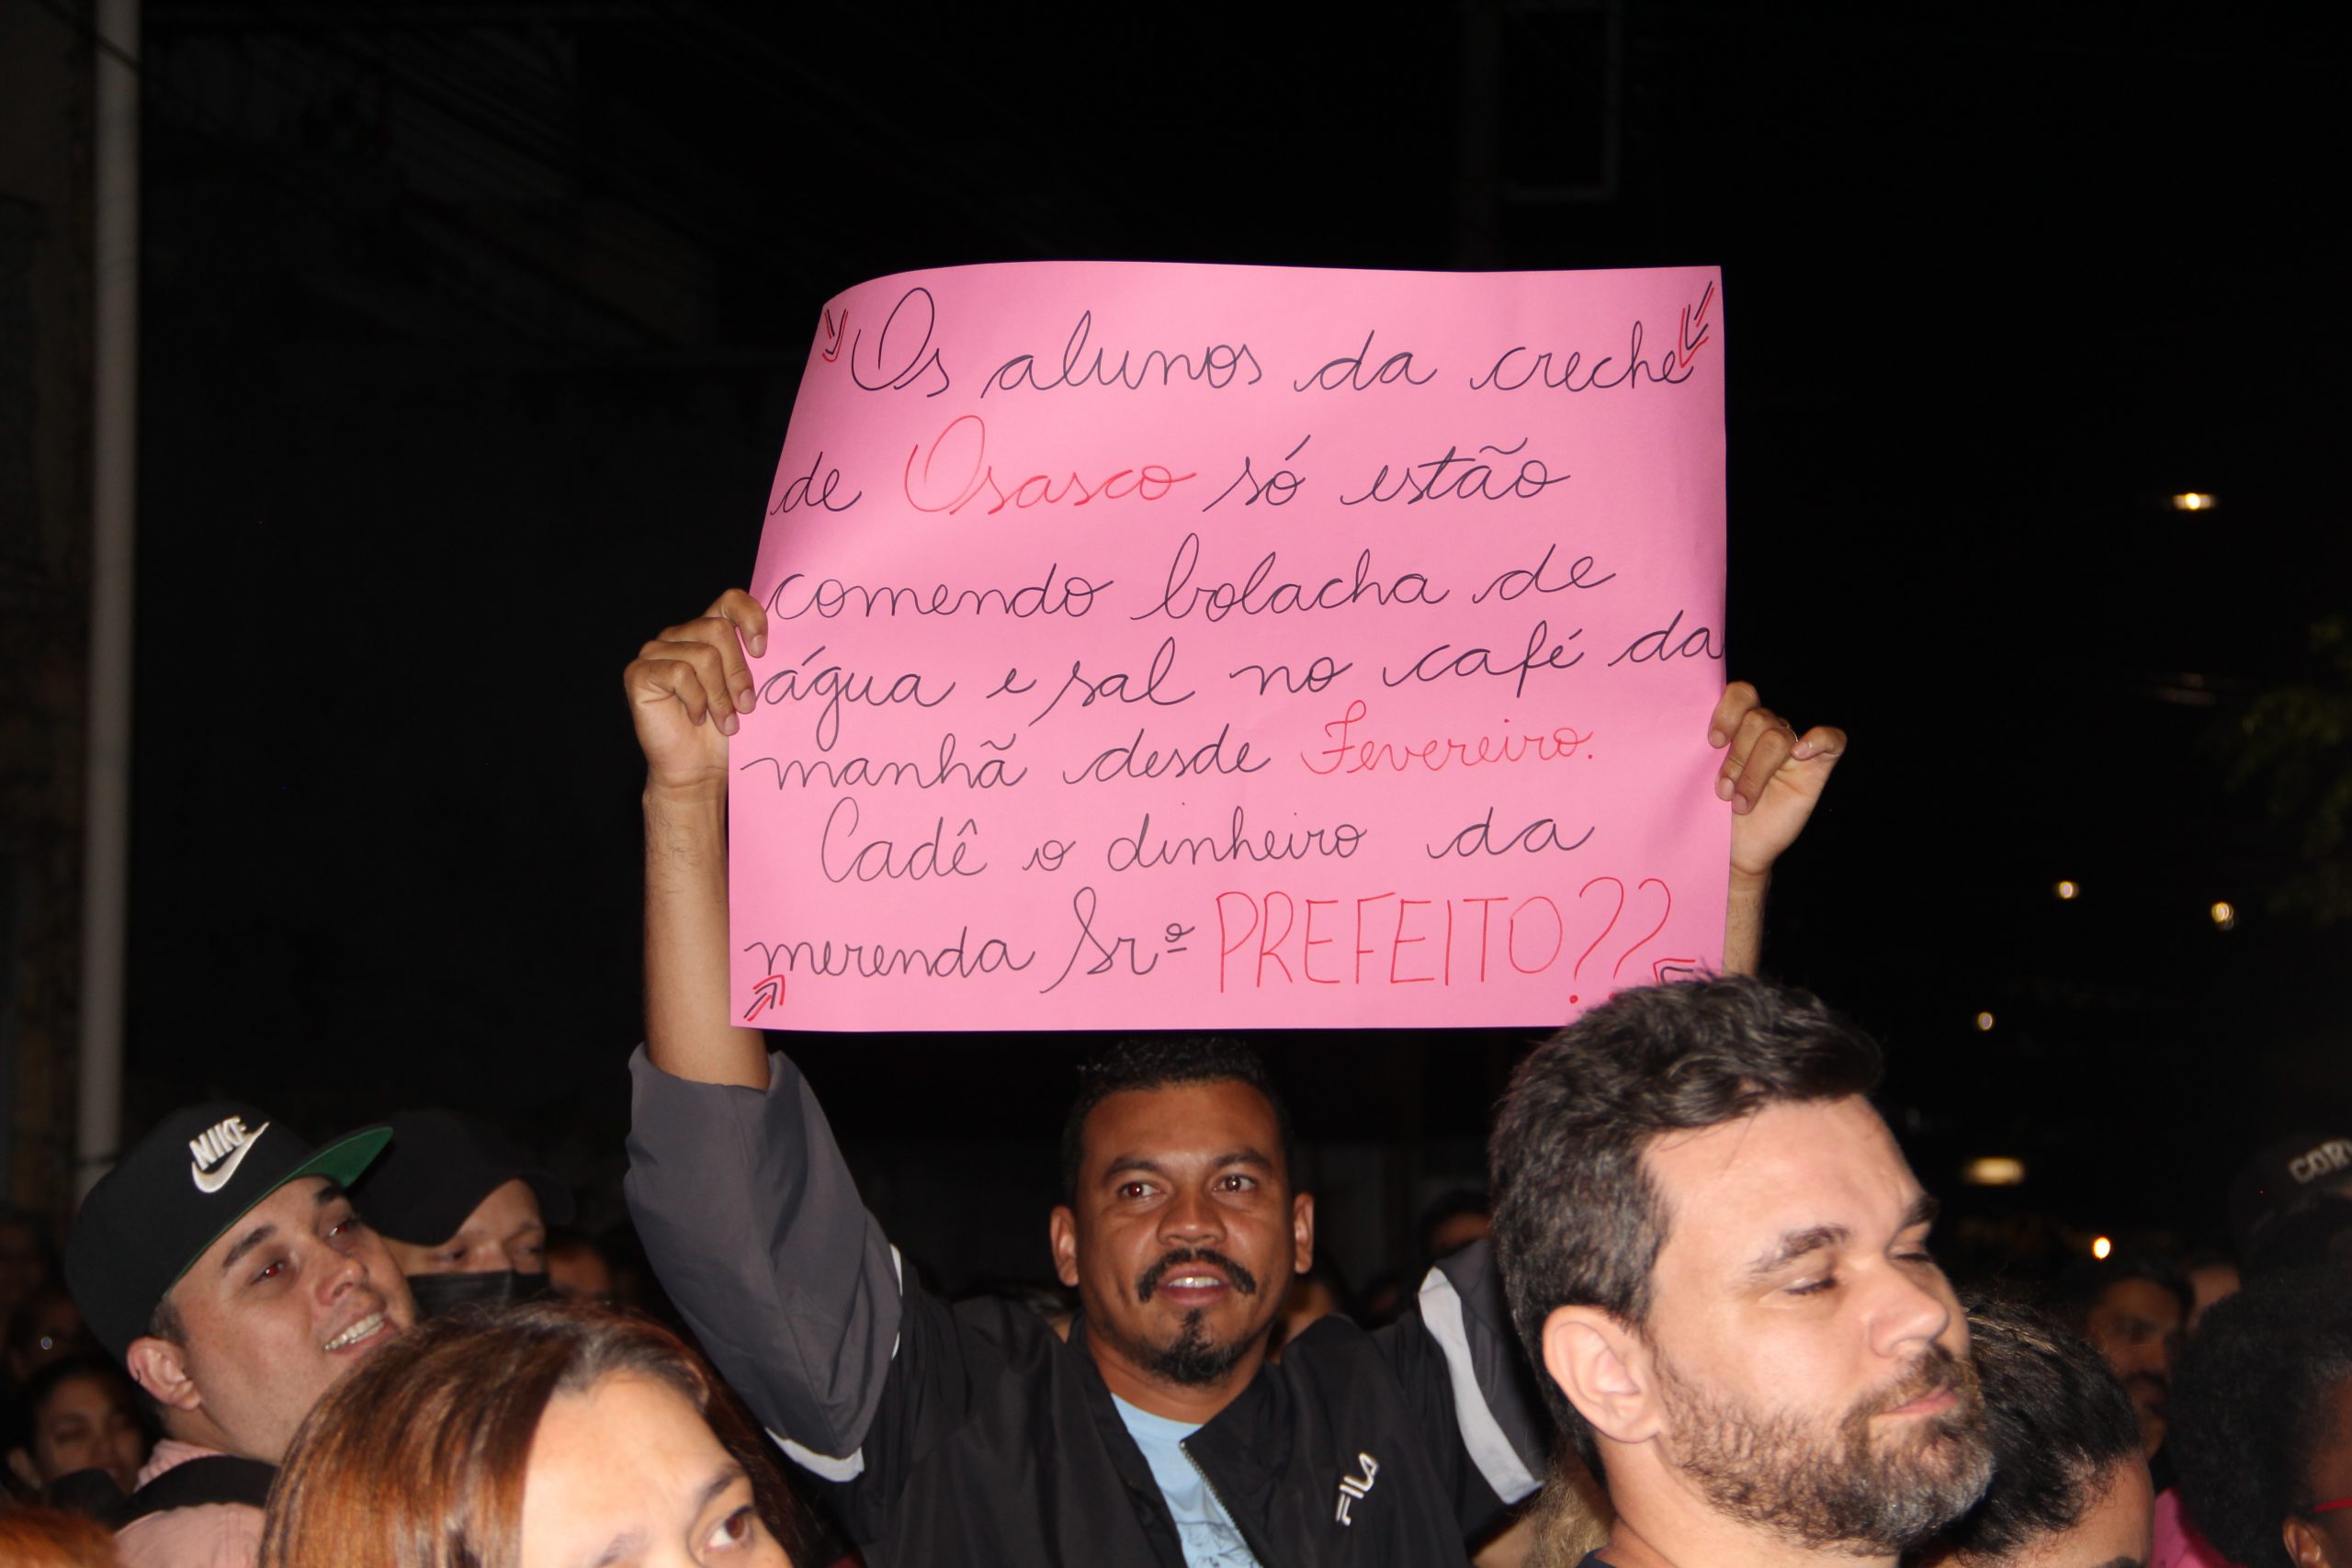 Os alunos da creche
de Osasco só estão
comendo bolacha de
água e sal no café da
manhã desde Fevereiro.
Cadê o dinheiro da
merenda Srº PREFEITO??
NIKE
FILA